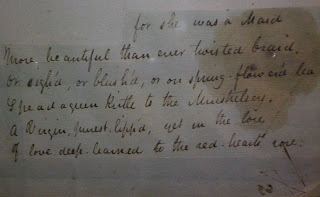 for she was a Maid
More beautiful than ever twisted braid,
Or sigh'd, or blush'd, or on spring-flowered lea
Spread a green Kirtle to the Minstrelsey.
A Virgin, purest lipp'd, yet in the lore
Of love deep-learned to the red-heart's core: